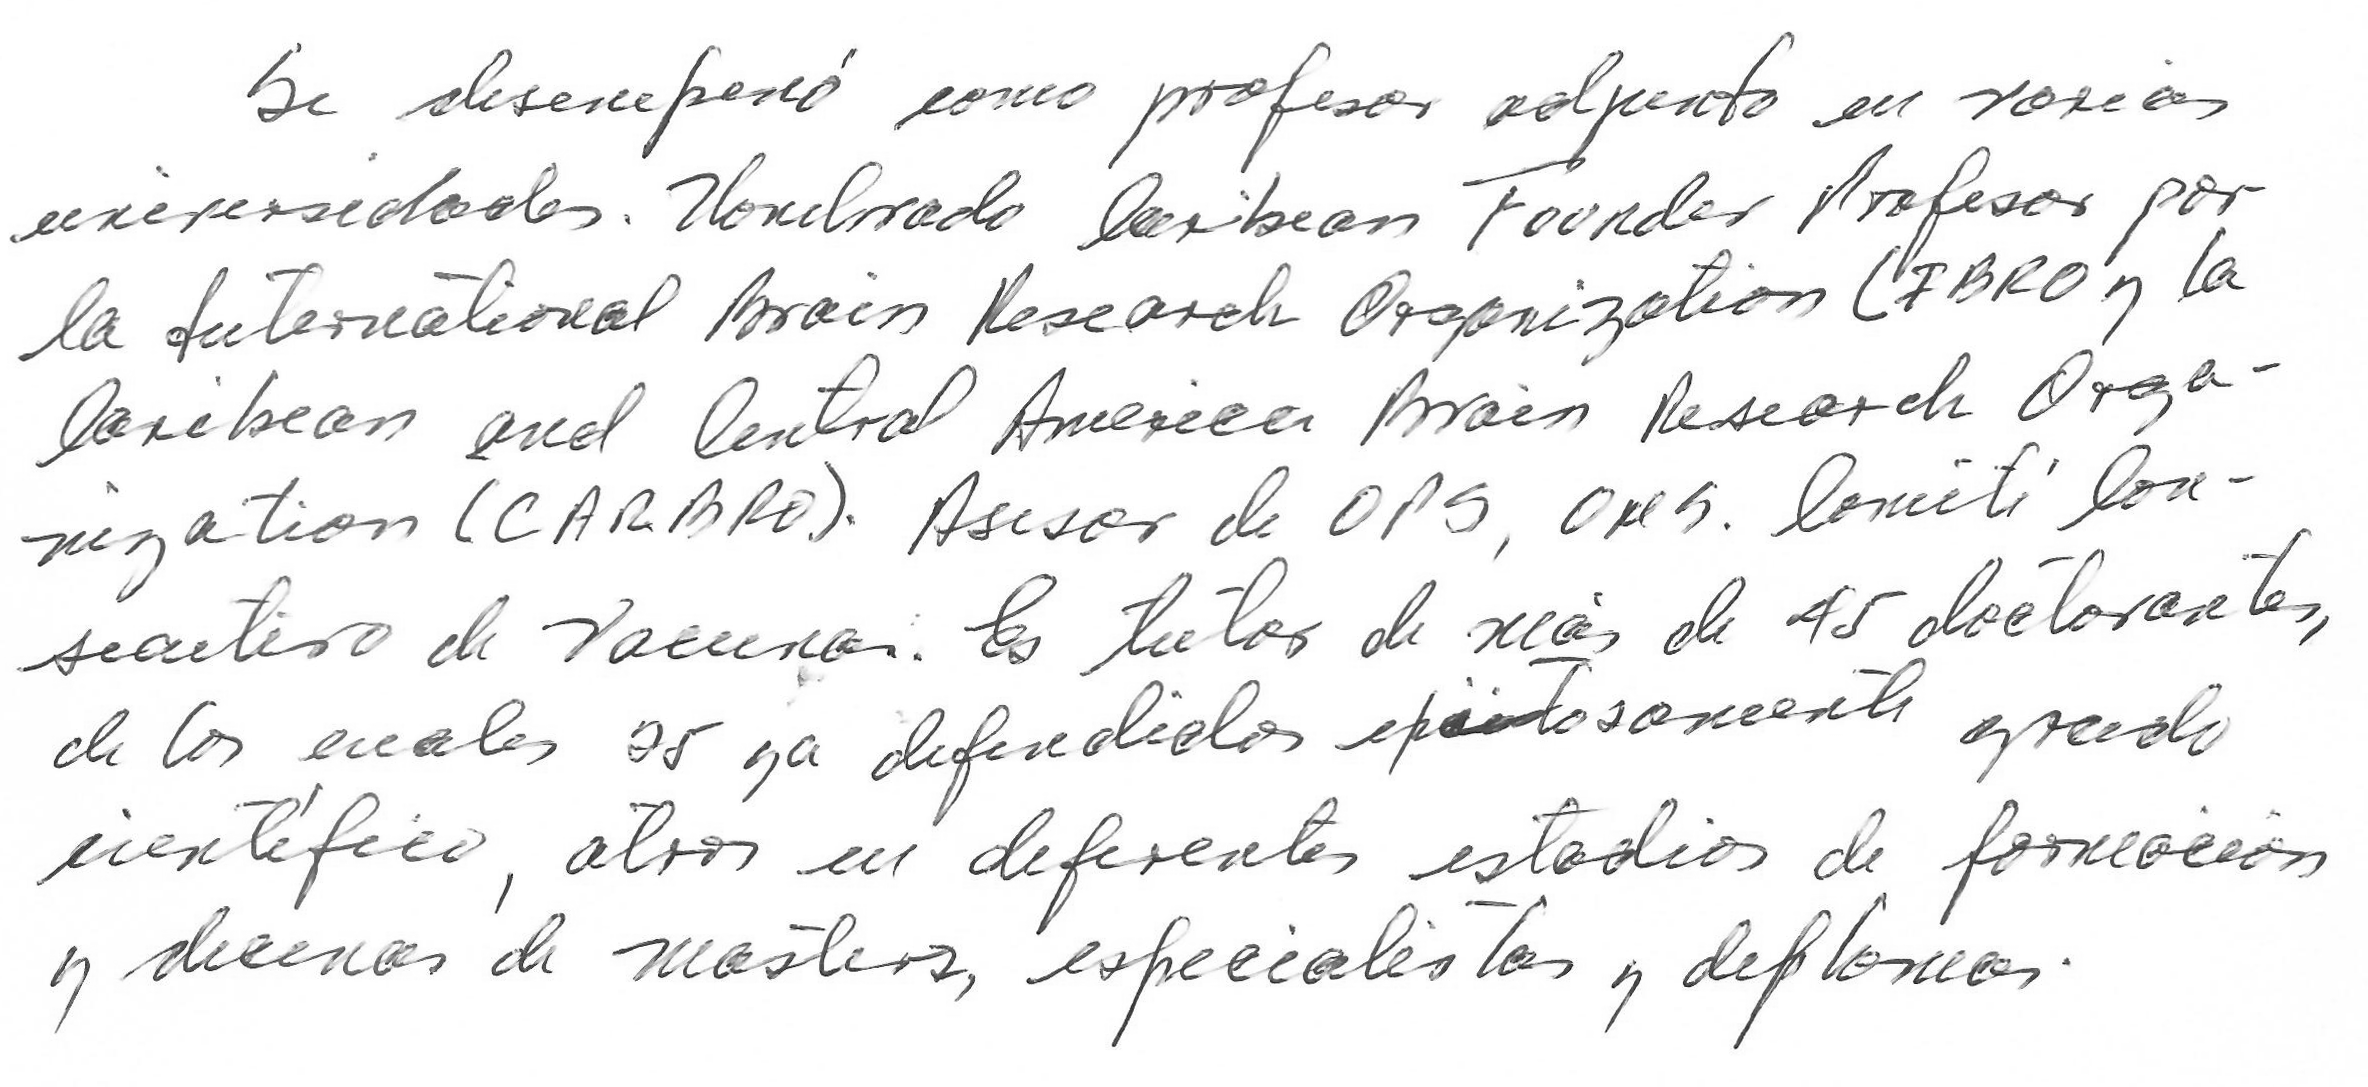 Se desempeñó como profesor adjunto en varias
universidades. Nombrado Caribean Founder Profesor por
la International Brain Research Organization (IBRO y la
Caribean and Central America Brain Research Orga-
nization (CARBRO). Asesor de OPS, OMS. Comité Con-
sultivo de Vacunas. Es tutor de más de 45 doctorantes,
de los cuales 25 ya defendidos exitosamente grado
científico, otros en diferentes estadios de formación
y decenas de masters, especialistas y diplomas.